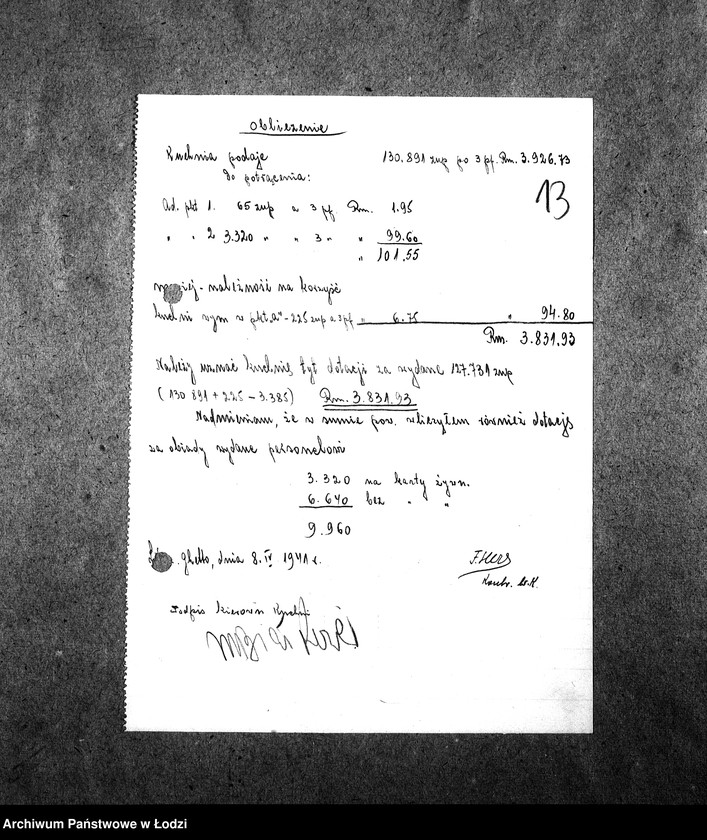 Obliczenie
Kuchnia podaje 130.891 zup po 3 pf. Rm. 3.926.73
do potrącenia:
13
Ad. pkt 1. 65 zup a 3 pf. Rm. 1.95
" " 2 3.320 " " 3 " " 99.60
" 101.55
należność na korzyść
kuchni wym w pkt. "a" - 225 zup a 3 pf " 6.75 " 94.80
Rm. 3.831.93
Należy uznać kuchnię tyt dotacji za wydane 127.731 zup
(130 891 + 225 - 3.385) Rm. 3.831.93
Nadmieniam, że w sumie pow. wliczyłem również dotację
za obiady wydane personelowi
3.320 na karty żywn.
6.640 bez " "
9.960
ghetto, dnia 8. IV 1941 r.
F. Hers
Kontr. W. K.
Podpis kierown Kuchni
Archiwum Państwowe w Łodzi